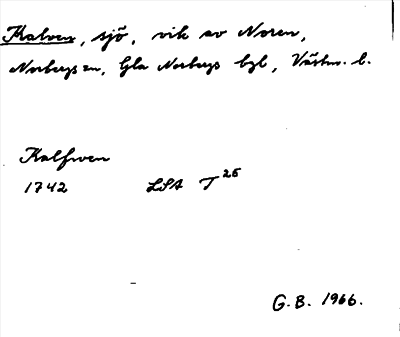 Kalven, sjö, vik av Noren,
Norbergs sn, Gla Norbergs bgl, Västm. l.
Kalfwen
1742 LSA T 26
G.B. 1966.